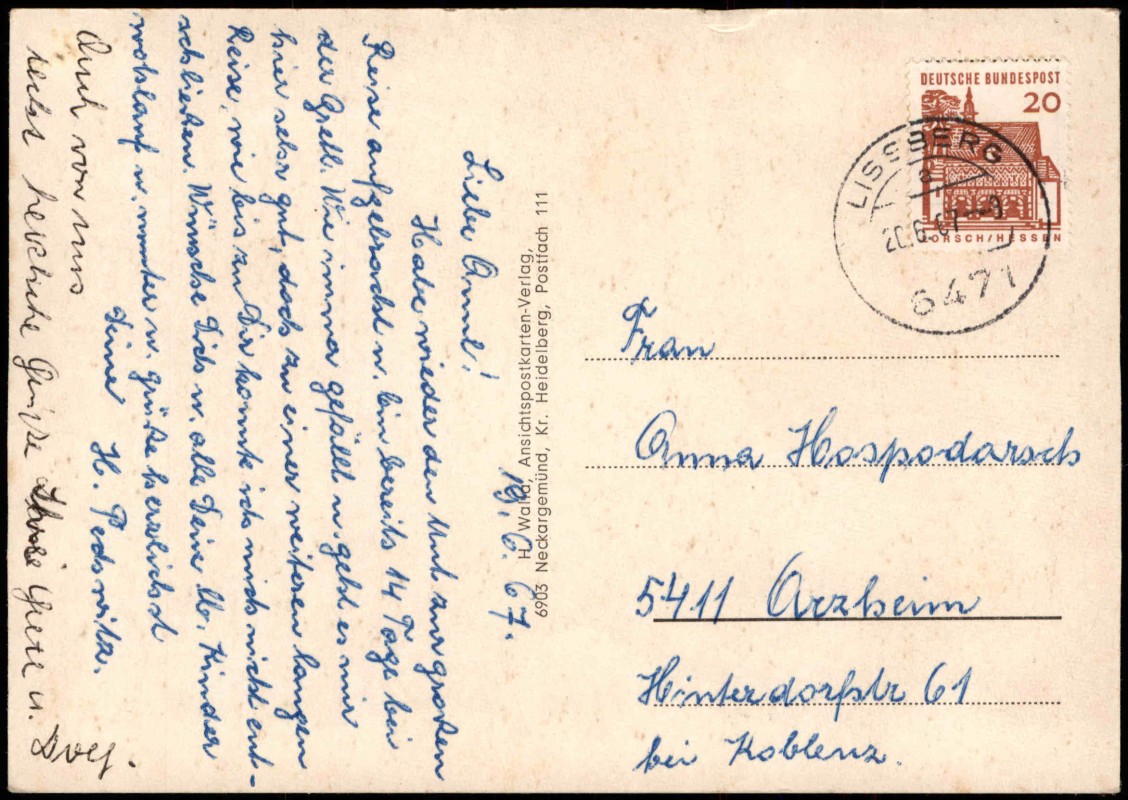 19. 6. 67.
Liebe Annl!
Habe wieder den Mut zur großen
Reise aufgebracht u. bin bereits 14 Tage bei
der Gretl. Wie immer gefällt u. geht es mir
hier sehr gut, doch zu einer weiteren langen
Reise, wie bis zu Dir konnte ich mich nicht ent-
schließen. Wünsche Dich u. alle Deine lb. Kinder
wohlauf u. munter u. grüße herzlichst
Deine
H.
Auch von uns
recht herzliche Grüße Ihre Gretl u.
H. Walla, Ansichtspostkarten-Verlag,
6903 Neckargemünd, Kr. Heidelberg, Postfach 111
DEUTSCHE BUNDESPOST
20
LORSCH/HESSEN
LISSBERG
20.6.67-9
6471
Frau
Anna Hospodarsch
5411 Arzheim
Hinterdorfstr 61
bei Koblenz.